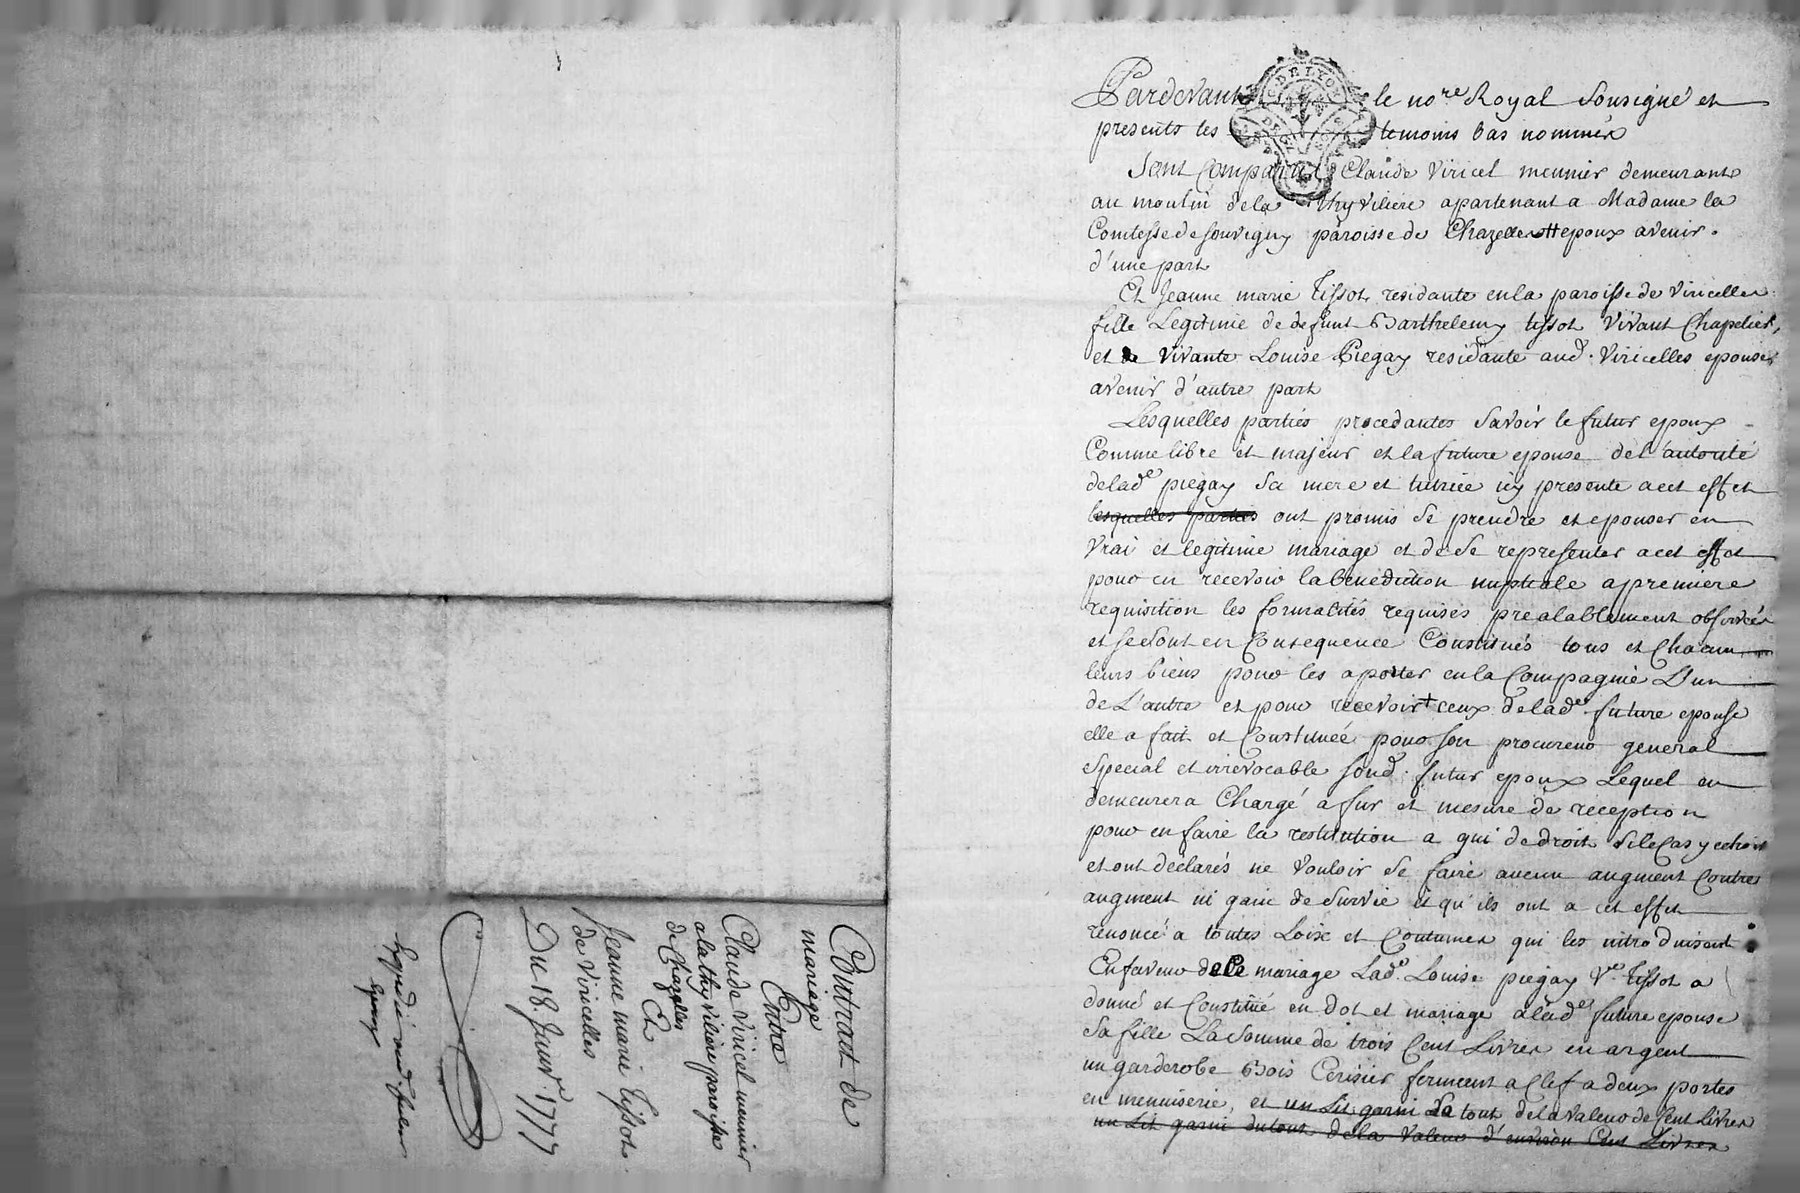 Contract de
mariage
Entre
Claude Viricel meunier
a la thyviliere paroisse
de Chazelles
Et
Jeanne marie Tissot
de Viricelles
Du 18. Janvr. 1777
Pardevant le nore Royal Sousigné et
presents les temoins bas nommés
Sont Comparus Claude Viricel meunier demeurant
au moulin de la thyviliere apartenant a Madame la
Comtesse de Souvigny paroisse de Chazelles epoux avenir
d'une part
Et Jeanne marie Tissot residante en la paroisse de Viricelles
fille Legitime de defunt Barthelemy tissot vivant Chapelier,
et de vivante Louise Piegay residante aud. Viricelles epouse
avenir d'autre part
Lesquelles parties procedantes Savoir le futur epoux
Comme libre et majeur et la future epouse de l'autorité
de lade piegay Sa mere et tutrice icy presente a cet effet
lesquelles parties ont promis de prendre et epouser en
vrai et legitime mariage et de se representer a cet effet
pour en recevoir la benediction nuptiale a premiere
requisition les formalités requises prealablement observées
et se sont en Consequence Constitués tous et Chacun
leurs biens pour les aporter en la Compagnie L'un
de L'autre et pour recevoir + ceux de lade future epouse
elle a fait et Constitué pour son procureur general
Special et irrevocable sond. futur epoux Lequel en
demeurera Chargé a fur et mesure de reception
pour en faire la restitution a qui de droit Si le Cas y echoit
et ont declarés ne vouloir se faire aucun augment Contre
augment ni gain de Survie et qu'ils ont a cet effet
renoncé a toutes Loix et Coutumes qui les introduisent
En faveur de Ce mariage Lade Louise piegay ve Tissot a
donné et Constitué en dot et mariage a lade future epouse
Sa fille La Somme de trois Cent Livres en argent
un garderobe Bois Cerisier fermant a Clef a deux portes
en menuiserie, et un Lit garni Le tout de la valeur de Cent Livres
un Lit garni du tout de la valeur d'environ Cent Livres